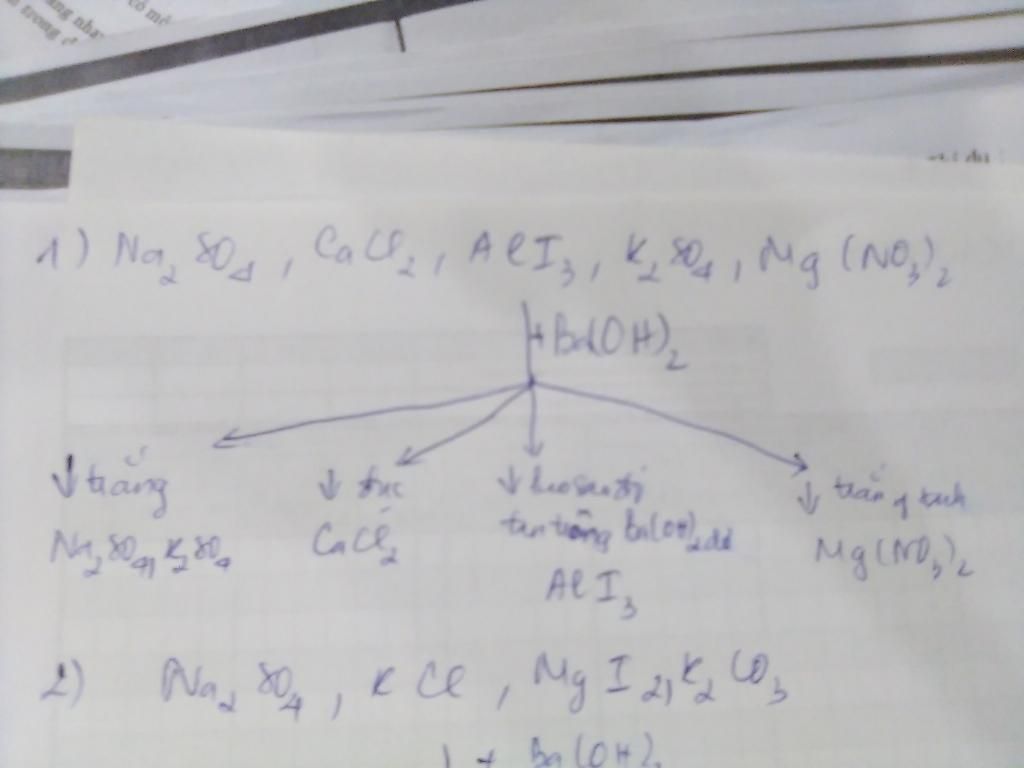 có mộ
1) Na2SO4, CaCl2, AlI3, K2SO4, Mg(NO3)2
+ Ba(OH)2
↓ trắng
Na2SO4, K2SO4
↓ đục
CaCl2
↓ keo sau đó
tan trong Ba(OH)2 dư
AlI3
↓ trắng
Mg(NO3)2
2) Na2SO4, KCl, MgI2, K2CO3
+ Ba(OH)2